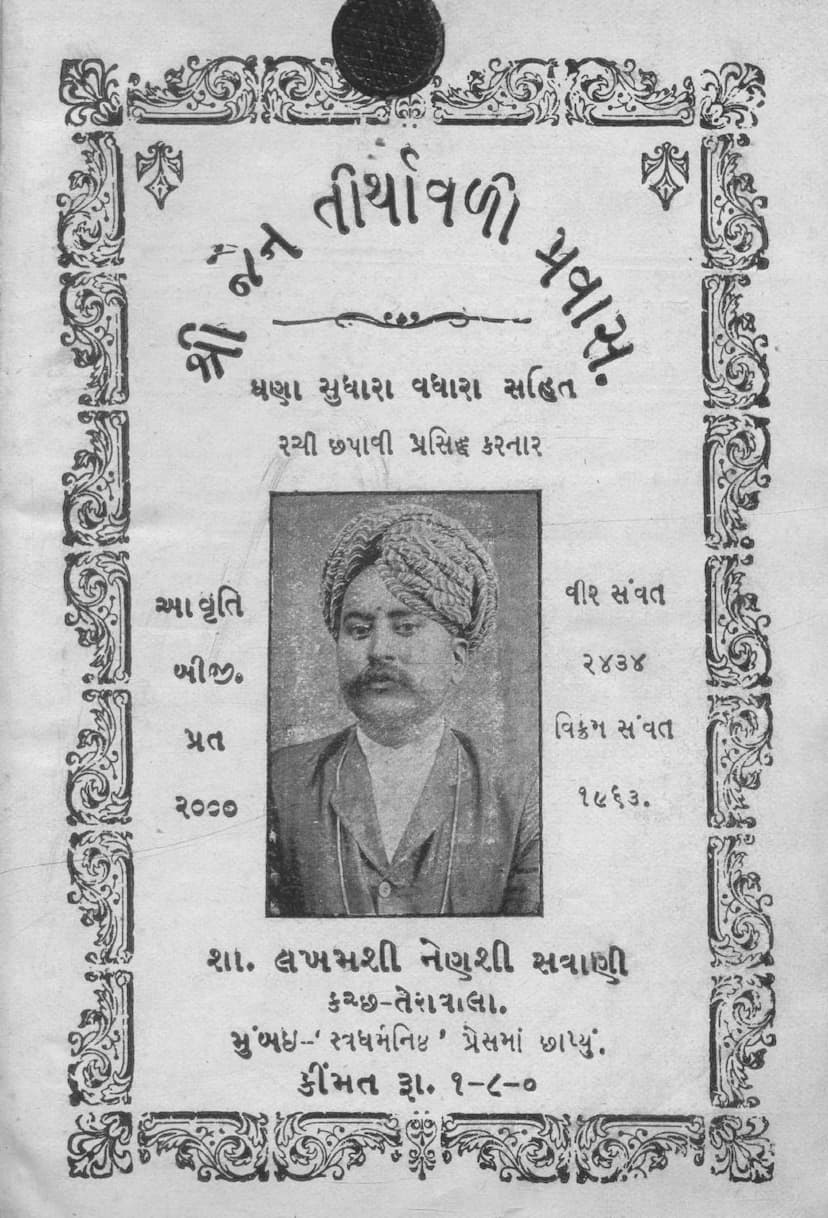 શ્રી જૈન તીર્થાવળી પ્રવાસ.
ઘણા સુધારા વધારા સહિત
રચી છપાવી પ્રસિદ્ધ કરનાર
આવૃતિ
બીજી.
પ્રત
૨૦૦૦
વીર સંવત
૨૪૩૪
વિક્રમ સંવત
૧૯૬૩.
શા. લખમશી નેણશી સવાણી
કચ્છ-તેરાવાલા.
મુંબઇ-‘સ્વધર્મનિષ્ઠ’ પ્રેસમાં છાપ્યું.
કીંમત રૂા. ૧-૮-૦